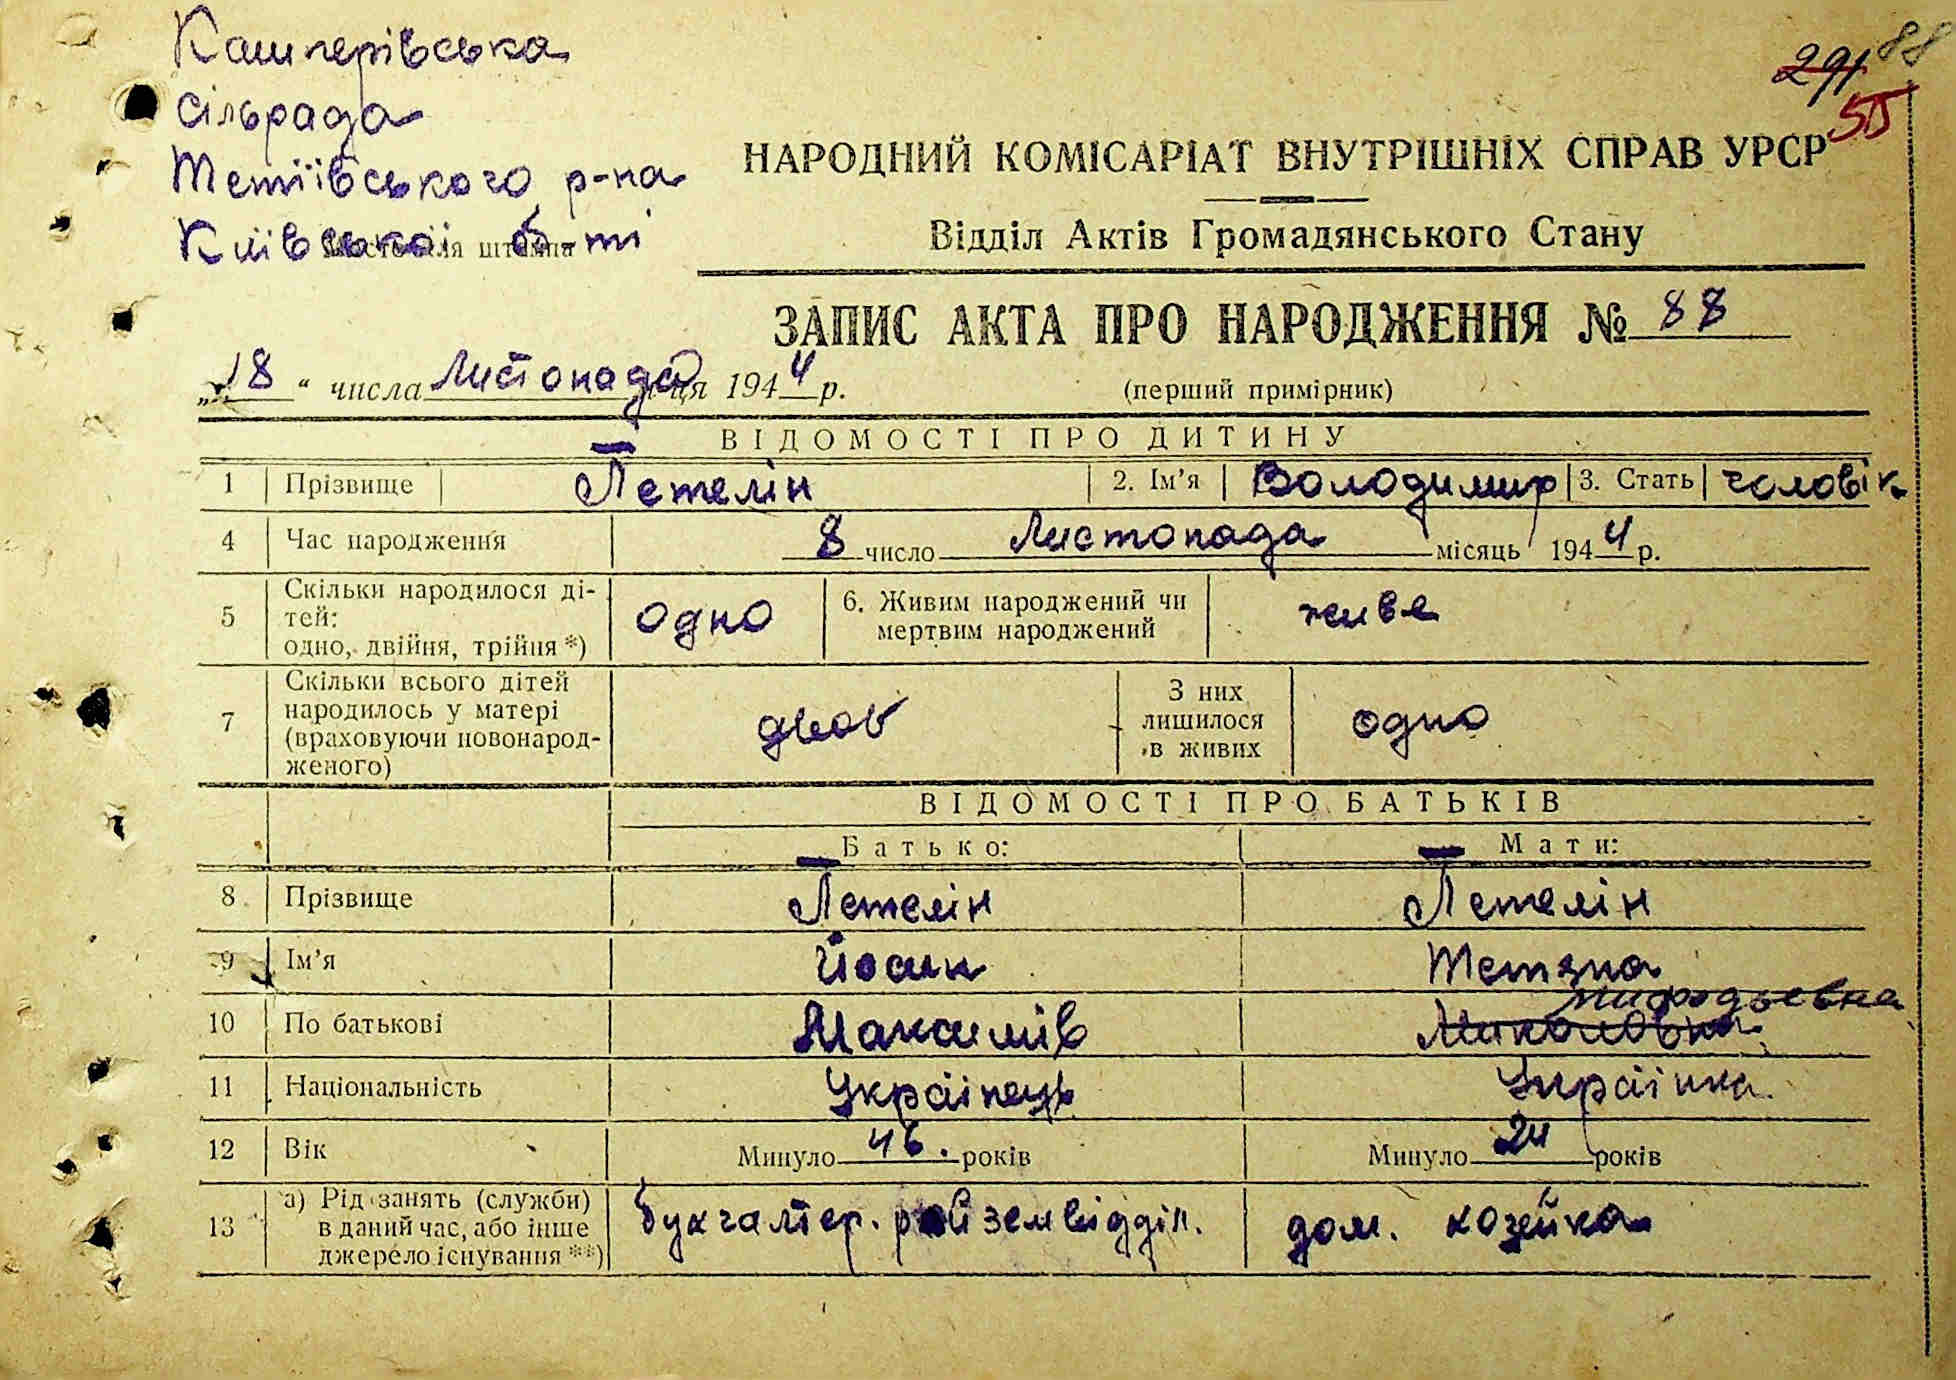 Кашперівська
сільрада
Тетіївського р-на
Київської об-ті
Місце для штампа
291 88
55
НАРОДНИЙ КОМІСАРІАТ ВНУТРІШНІХ СПРАВ УРСР
Відділ Актів Громадянського Стану
ЗАПИС АКТА ПРО НАРОДЖЕННЯ № 88
„18“ числа Листопада м-ця 1944 р.
(перший примірник)
ВІДОМОСТІ ПРО ДИТИНУ
1 Прізвище Петелін 2. Ім’я Володимир 3. Стать чоловік
4 Час народження 8 число Листопада місяць 1944 р.
5 Скільки народилося ді-
тей:
одно, двійня, трійня *) одно 6. Живим народжений чи
мертвим народжений живе
7 Скільки всього дітей
народилось у матері
(враховуючи новонарод-
женого) двоє З них
лишилося
в живих одно
ВІДОМОСТІ ПРО БАТЬКІВ
Батько: Мати:
8 Прізвище Петелін Петелін
9 Ім’я Йосип Тетяна
мифодьевна
10 По батькові Максимів Миколовна
11 Національність Українець Українка
12 Вік Минуло 46 років Минуло 24 років
13 а) Рід занять (служби)
в даний час, або інше
джерело існування **) бухгалтер. райземвідділ. дом. хозейка